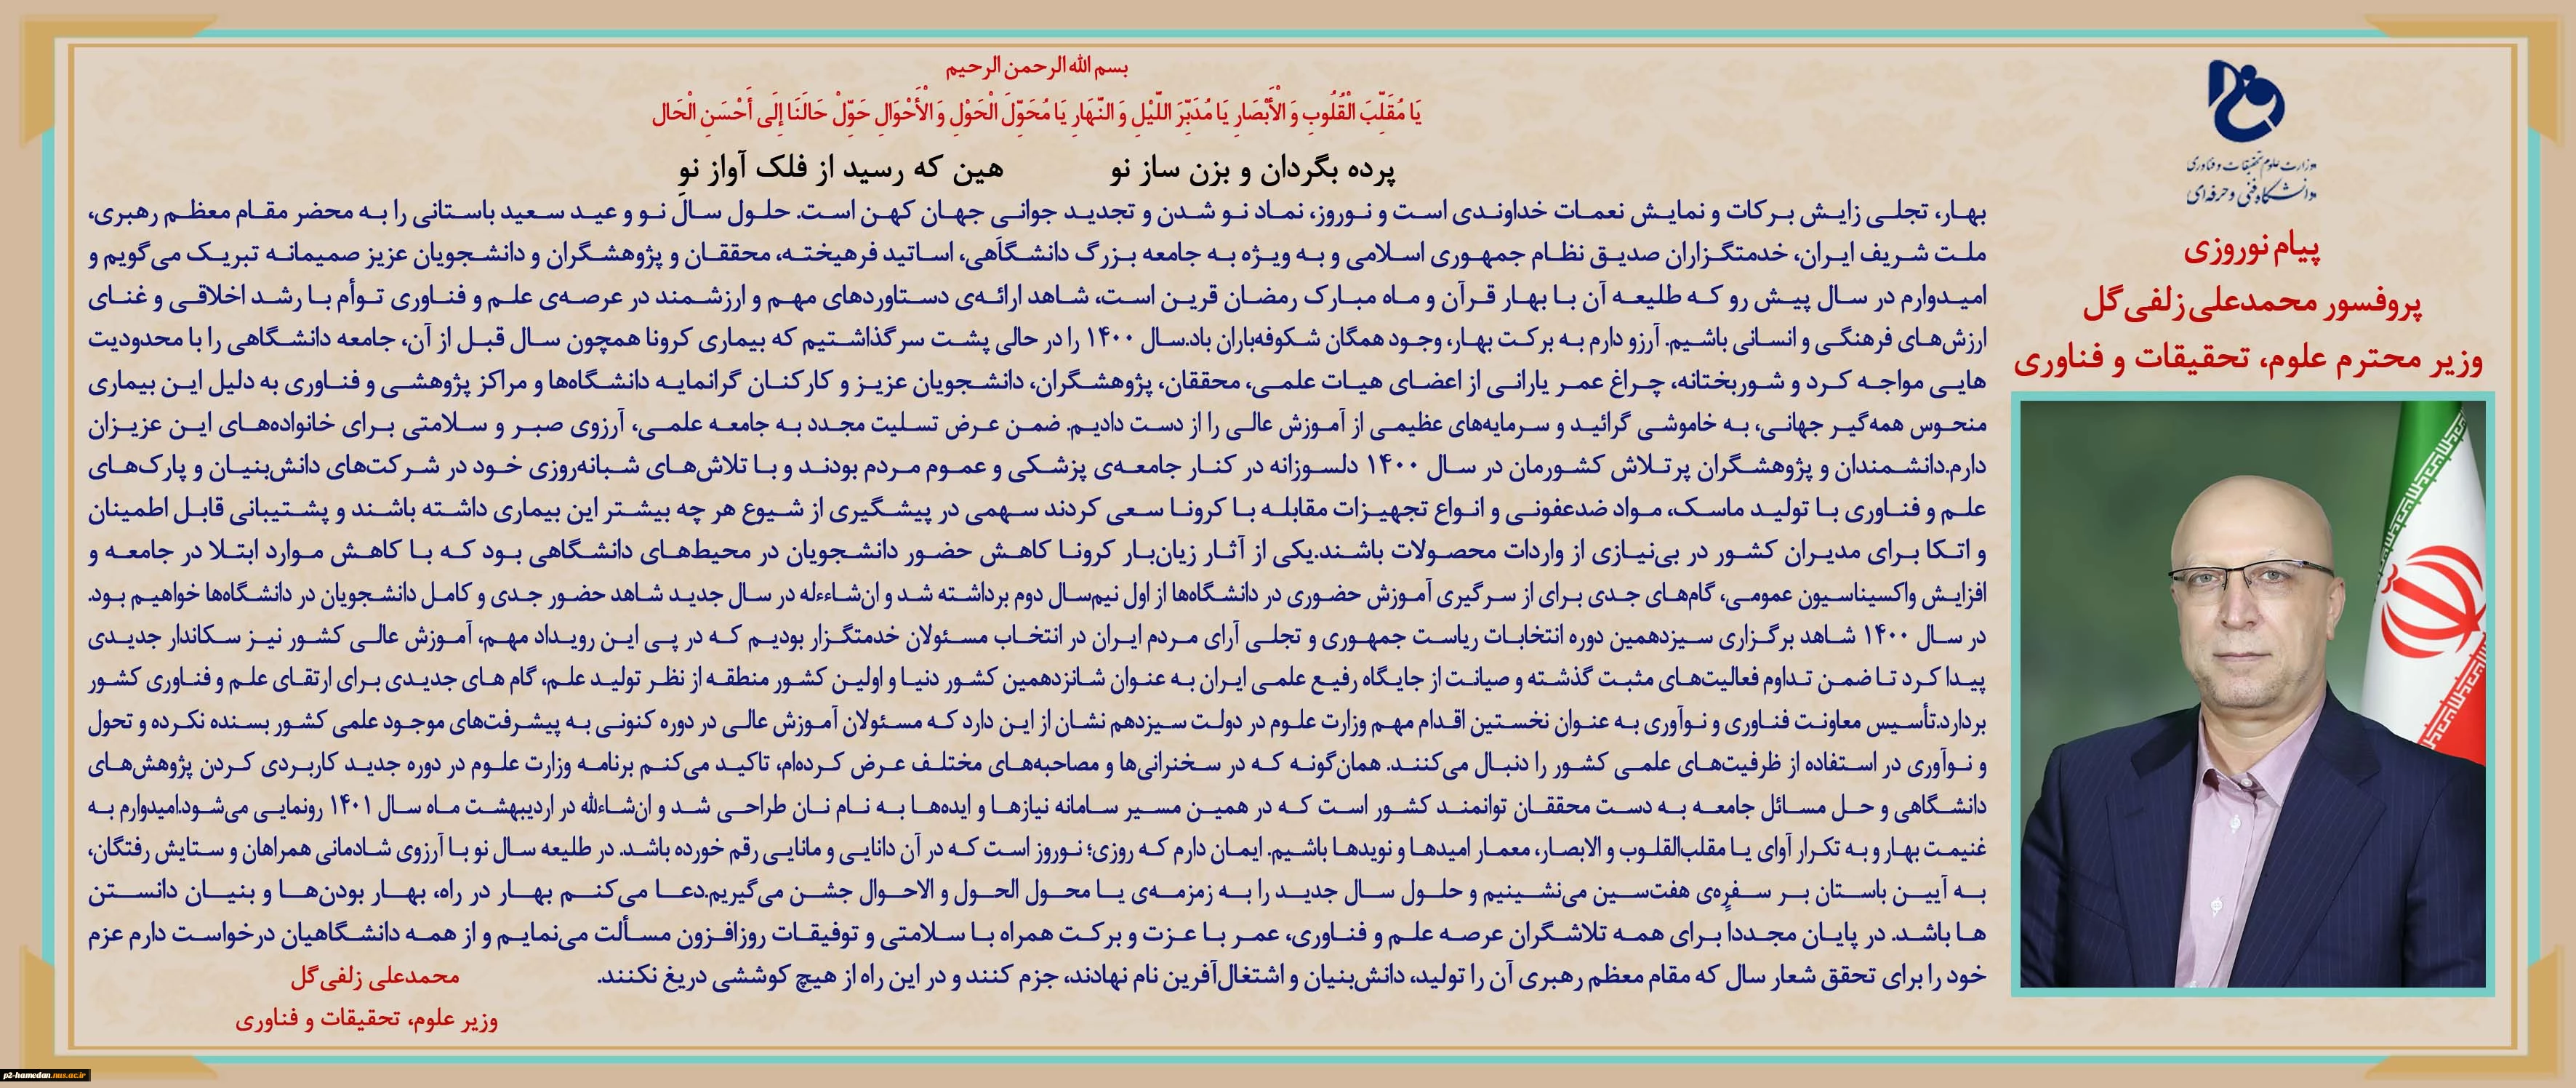 وزارت علوم تحقیقات و فناوری
دانشگاه فنی و حرفه‌ای
پیام نوروزی
پروفسور محمدعلی زلفی‌گل
وزیر محترم علوم، تحقیقات و فناوری
بسم الله الرحمن الرحیم
يَا مُقَلِّبَ الْقُلُوبِ وَ الْأَبْصَارِ يَا مُدَبِّرَ اللَّيْلِ وَ النَّهَارِ يَا مُحَوِّلَ الْحَوْلِ وَ الْأَحْوَالِ حَوِّلْ حَالَنَا إِلَى أَحْسَنِ الْحَال
پرده بگردان و بزن ساز نو هین که رسید از فلک آواز نو
بهار، تجلی زایش برکات و نمایش نعمات خداوندی است و نوروز، نماد نو شدن و تجدید جوانی جهان کهن است. حلول سال نو و عید سعید باستانی را به محضر مقام معظم رهبری،
ملت شریف ایران، خدمتگزاران صدیق نظام جمهوری اسلامی و به ویژه به جامعه بزرگ دانشگاهی، اساتید فرهیخته، محققان و پژوهشگران و دانشجویان عزیز صمیمانه تبریک می‌گویم و
امیدوارم در سال پیش رو که طلیعه آن با بهار قرآن و ماه مبارک رمضان قرین است، شاهد ارائه‌ی دستاوردهای مهم و ارزشمند در عرصه‌ی علم و فناوری توأم با رشد اخلاقی و غنای
ارزش‌های فرهنگی و انسانی باشیم. آرزو دارم به برکت بهار، وجود همگان شکوفه‌باران باد.سال ۱۴۰۰ را در حالی پشت سر گذاشتیم که بیماری کرونا همچون سال قبل از آن، جامعه دانشگاهی را با محدودیت
هایی مواجه کرد و شوربختانه، چراغ عمر یارانی از اعضای هیات علمی، محققان، پژوهشگران، دانشجویان عزیز و کارکنان گرانمایه دانشگاه‌ها و مراکز پژوهشی و فناوری به دلیل این بیماری
منحوس همه‌گیر جهانی، به خاموشی گرائید و سرمایه‌های عظیمی از آموزش عالی را از دست دادیم. ضمن عرض تسلیت مجدد به جامعه علمی، آرزوی صبر و سلامتی برای خانواده‌های این عزیزان
دارم.دانشمندان و پژوهشگران پرتلاش کشورمان در سال ۱۴۰۰ دلسوزانه در کنار جامعه‌ی پزشکی و عموم مردم بودند و با تلاش‌های شبانه‌روزی خود در شرکت‌های دانش‌بنیان و پارک‌های
علم و فناوری با تولید ماسک، مواد ضدعفونی و انواع تجهیزات مقابله با کرونا سعی کردند سهمی در پیشگیری از شیوع هر چه بیشتر این بیماری داشته باشند و پشتیبانی قابل اطمینان
و اتکا برای مدیران کشور در بی‌نیازی از واردات محصولات باشند.یکی از آثار زیان‌بار کرونا کاهش حضور دانشجویان در محیط‌های دانشگاهی بود که با کاهش موارد ابتلا در جامعه و
افزایش واکسیناسیون عمومی، گام‌های جدی برای از سرگیری آموزش حضوری در دانشگاه‌ها از اول نیم‌سال دوم برداشته شد و ان‌شاءءله در سال جدید شاهد حضور جدی و کامل دانشجویان در دانشگاه‌ها خواهیم بود.
در سال ۱۴۰۰ شاهد برگزاری سیزدهمین دوره انتخابات ریاست جمهوری و تجلی آرای مردم ایران در انتخاب مسئولان خدمتگزار بودیم که در پی این رویداد مهم، آموزش عالی کشور نیز سکاندار جدیدی
پیدا کرد تا ضمن تداوم فعالیت‌های مثبت گذشته و صیانت از جایگاه رفیع علمی ایران به عنوان شانزدهمین کشور دنیا و اولین کشور منطقه از نظر تولید علم، گام های جدیدی برای ارتقای علم و فناوری کشور
بردارد.تأسیس معاونت فناوری و نوآوری به عنوان نخستین اقدام مهم وزارت علوم در دولت سیزدهم نشان از این دارد که مسئولان آموزش عالی در دوره کنونی به پیشرفت‌های موجود علمی کشور بسنده نکرده و تحول
و نوآوری در استفاده از ظرفیت‌های علمی کشور را دنبال می‌کنند. همان‌گونه که در سخنرانی‌ها و مصاحبه‌های مختلف عرض کرده‌ام، تاکید می‌کنم برنامه وزارت علوم در دوره جدید کاربردی کردن پژوهش‌های
دانشگاهی و حل مسائل جامعه به دست محققان توانمند کشور است که در همین مسیر سامانه نیازها و ایده‌ها به نام نان طراحی شد و ان‌شاءالله در اردیبهشت ماه سال ۱۴۰۱ رونمایی می‌شود.امیدوارم به
غنیمت بهار و به تکرار آوای یا مقلب‌القلوب و الابصار، معمار امیدها و نویدها باشیم. ایمان دارم که روزی؛ نوروز است که در آن دانایی و مانایی رقم خورده باشد. در طلیعه سال نو با آرزوی شادمانی همراهان و ستایش رفتگان،
به آیین باستان بر سفره‌ی هفت‌سین می‌نشینیم و حلول سال جدید را به زمزمه‌ی یا محول الحول و الاحوال جشن می‌گیریم.دعا می‌کنم بهار در راه، بهار بودن‌ها و بنیان دانستن
ها باشد. در پایان مجددا برای همه تلاشگران عرصه علم و فناوری، عمر با عزت و برکت همراه با سلامتی و توفیقات روزافزون مسألت می‌نمایم و از همه دانشگاهیان درخواست دارم عزم
خود را برای تحقق شعار سال که مقام معظم رهبری آن را تولید، دانش‌بنیان و اشتغال‌آفرین نام نهادند، جزم کنند و در این راه از هیچ کوششی دریغ نکنند.
محمدعلی زلفی‌گل
وزیر علوم، تحقیقات و فناوری
p2-hamedan.nus.ac.ir